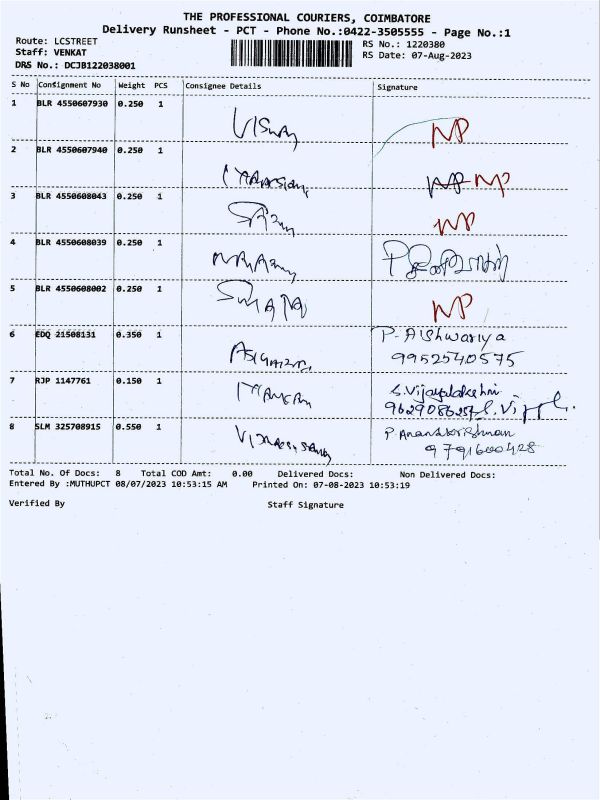 THE PROFESSIONAL COURIERS, COIMBATORE
Delivery Runsheet - PCT - Phone No.:0422-3505555 - Page No.:1
Route: LCSTREET
RS No.: 1220380
Staff: VENKAT
RS Date: 07-Aug-2023
DRS No.: DCJB122038001
S No Consignment No Weight PCS Consignee Details Signature
1 BLR 4550607930 0.250 1 NP
2 BLR 4550607940 0.250 1 NP NP
3 BLR 4550608043 0.250 1 NP
4 BLR 4550608039 0.250 1
5 BLR 4550608002 0.250 1 NP
6 EDQ 21508131 0.350 1 P. Aishwariya
9952540575
7 RJP 1147761 0.150 1 S.Vijayalakshmi
8 SLM 325708915 0.550 1 P. Anandkrishnan
9791600428
Total No. Of Docs: 8 Total COD Amt: 0.00 Delivered Docs: Non Delivered Docs:
Entered By :MUTHUPCT 08/07/2023 10:53:15 AM Printed On: 07-08-2023 10:53:19
Verified By Staff Signature